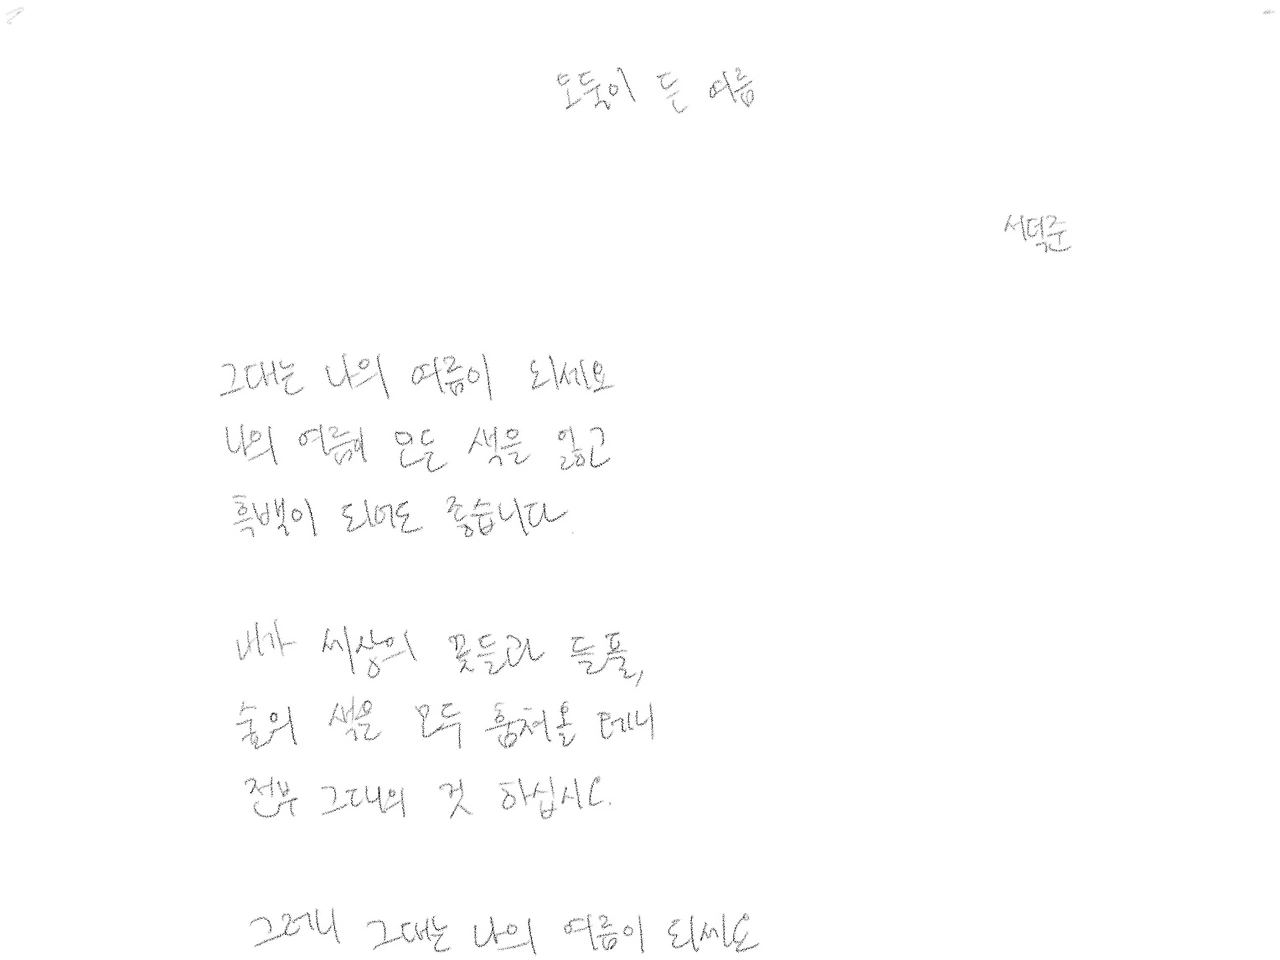 도둑이 든 여름
서덕준
그대는 나의 여름이 되세요
나의 여름이 모든 색을 잃고
흑백이 되어도 좋습니다.
내가 세상의 꽃들과 들풀,
숲의 색을 모두 훔쳐올 테니
전부 그대의 것 하십시오.
그러니 그대는 나의 여름이 되세요